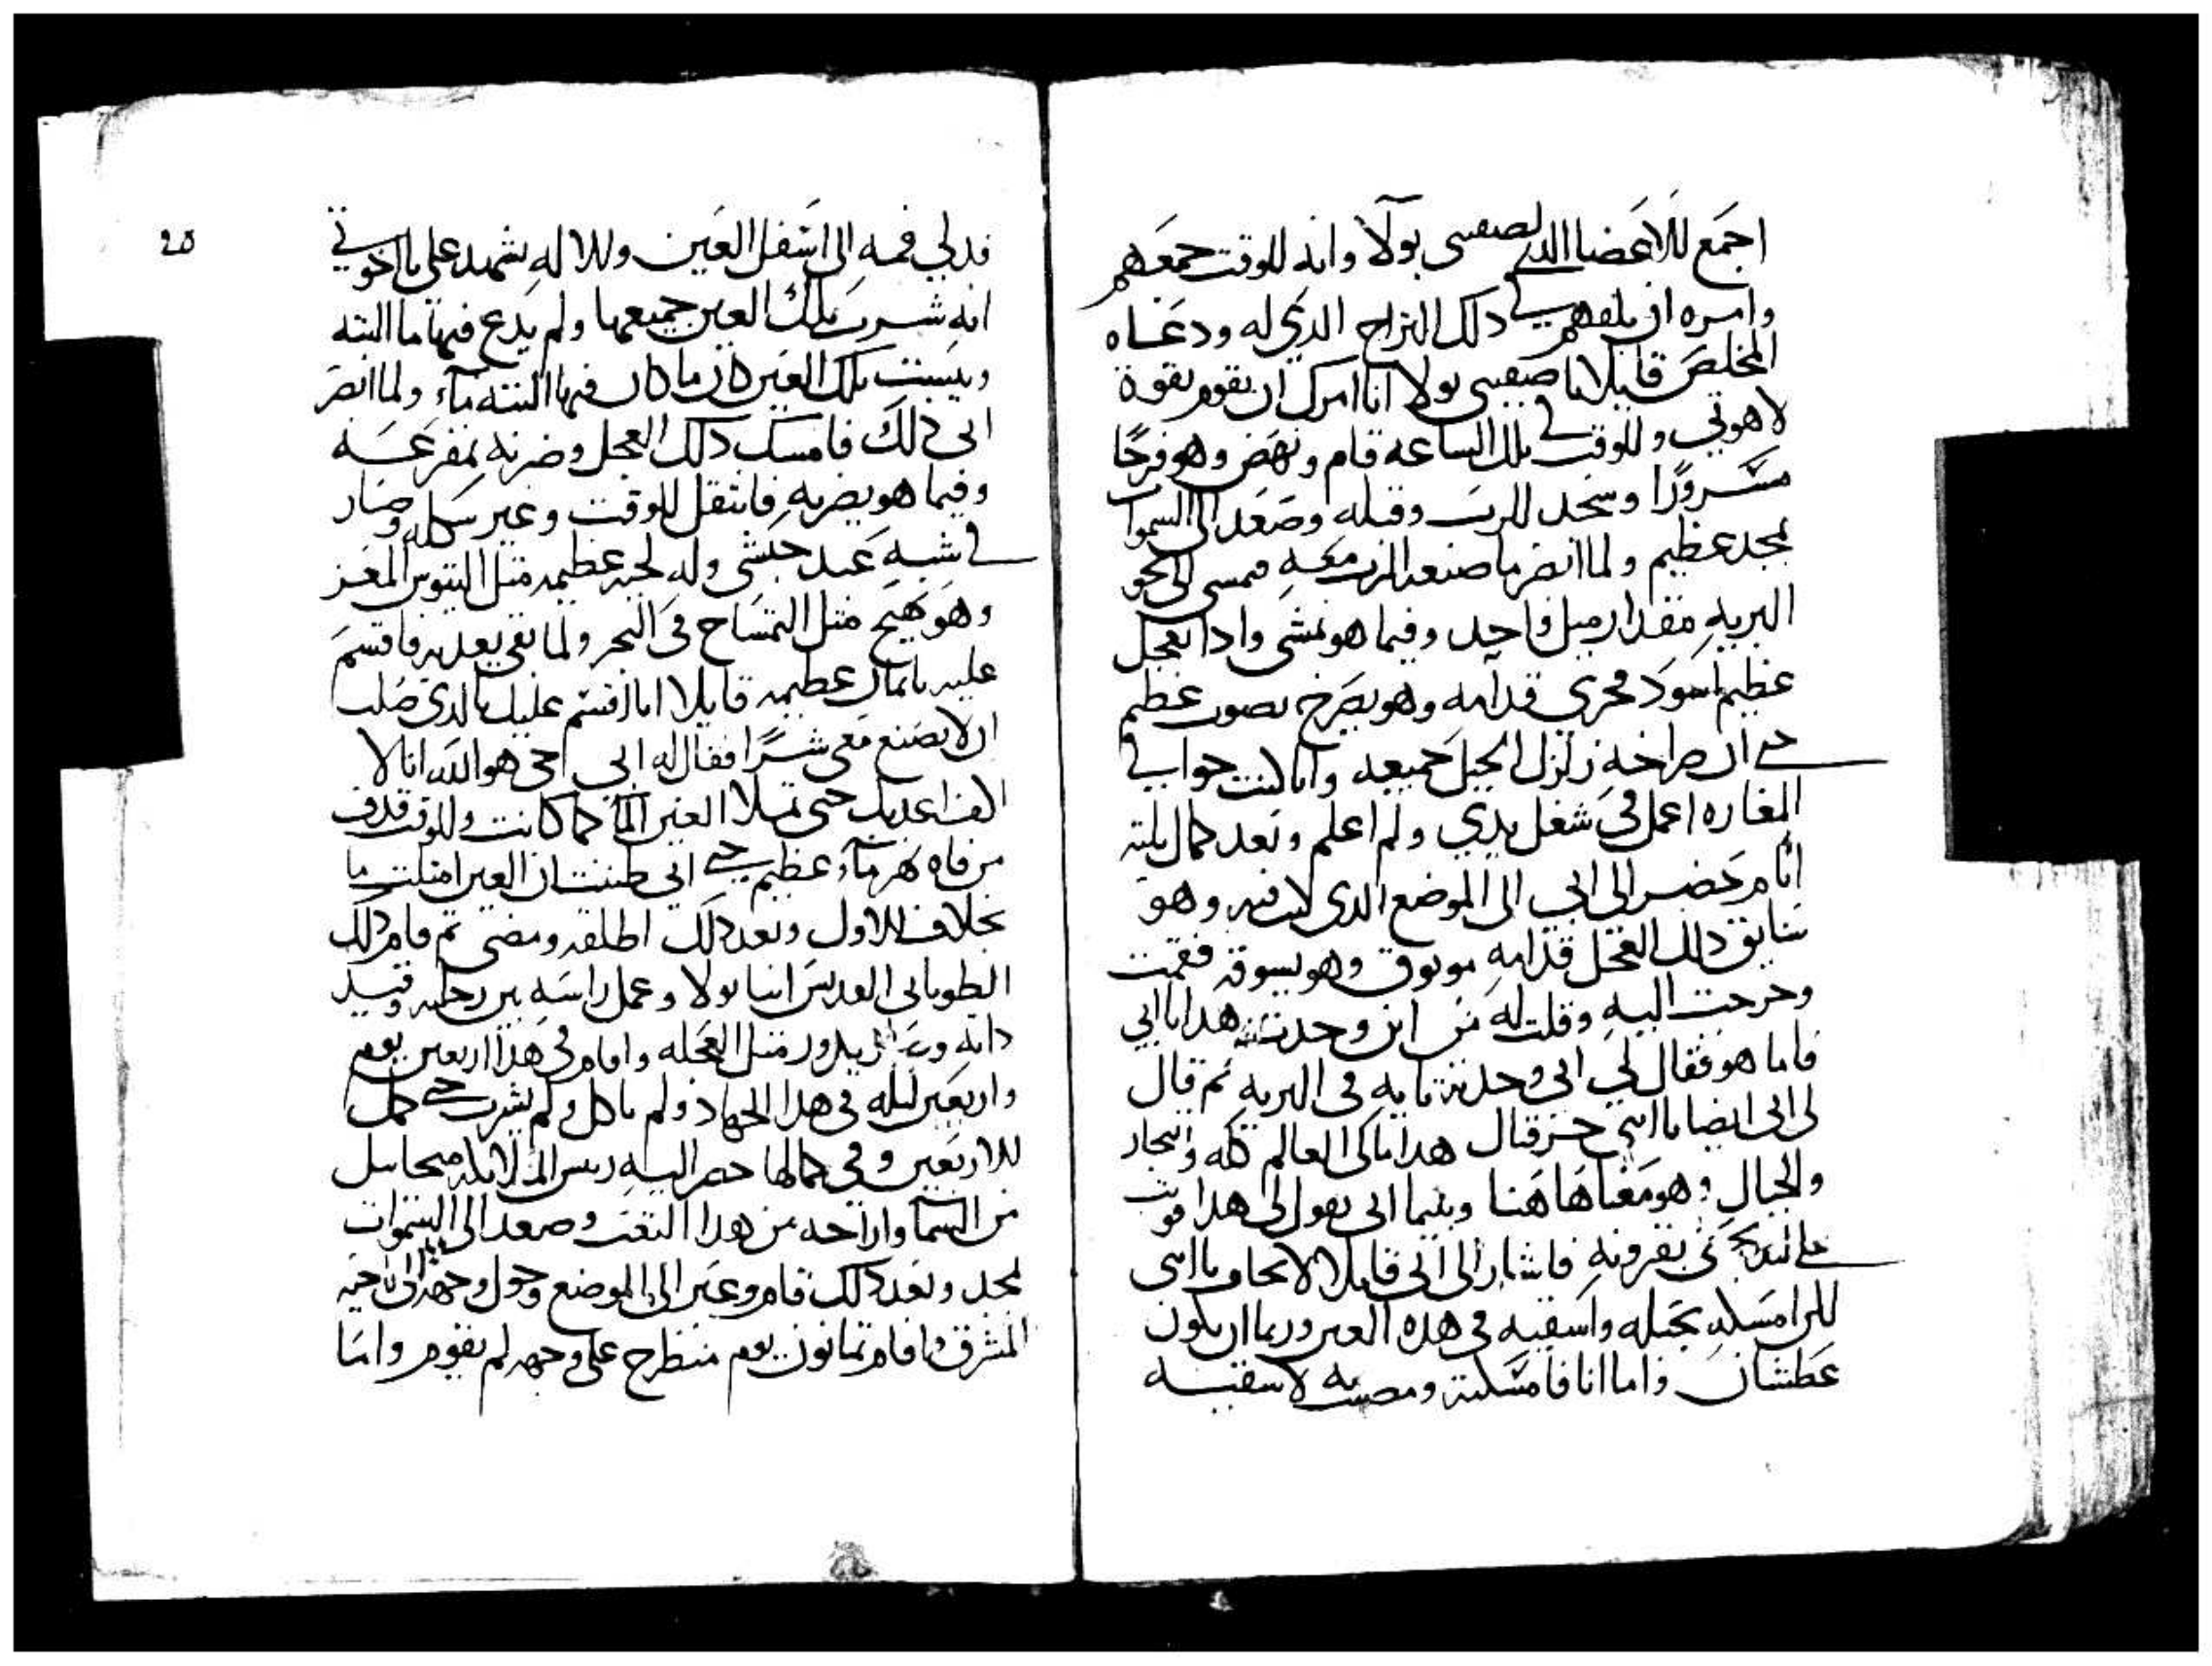 اجمع للاعضا الدي لصفيى بولا وانه للوقت جمعهم
وامره ان يلفهم في دلك المزاح الدي له ودعاه
المخلص قايلا يا صفيى بولا انا امرك ان تقوم بقوة
لاهوتي وللوقت في تلك الساعه قام ونهض وهو فرحًا
مسرورًا وسجد للرب وقبله وصعد الى السموات
بمجد عظيم ولما ابصر ما صنعه الرب معه فمسى الى نحو
البريه مقدار ميل واحد وفيما هو يمشي وادا بعجل
عظيم اسود مجري قدامه وهو يصرخ بصوت عظيم
حتى ان صراخه زلزل الجبل جميعه وانا كنت جوا في
المغاره اعمل في شغل يدي ولم اعلم وبعد كمال تلته
ايام حضر الى ابي الى الموضع الدي كنت فيه وهو
سايق دلك العجل قدامه موتوق وهو يسوقه فقمت
وخرجت اليه وقلت له من اين وجدت هدا يا ابي
فاما هو فقال لي ابي وجدته تايه في البريه تم قال
لي ابي ايضا يا ابني حزقيال هدا ياكل العالم كله والبحار
والجبال وهو معنا هاهنا وبينما ابي يقول لي هدا فوتب
علي ليدبحني بقرونه فاشار الي ابي قايلا لا تخاف يا ابني
للن امسكه بحبله واسقيه في هده العين وربما ان يكون
عطشان واما انا فامسكته ومضيت به لاسقيه
فدلي فمه الى اسفل العين وللاله يشهد علي يا اخوتي
انه شرب تلك العين جميعها ولم يدع فيها ما البته
ويبست تلك العين كان ما كان فيها البته ماء ولما ابصر
ابي دلك فامسك دلك العجل وضربه بمقرعه
وفيما هو يضربه فانتقل للوقت وغير شكله وصار
في شبه عبد حبشي وله لحيه عظيمه متل التيوس المعز
وهو يهيج متل التمساح في البحر ولما بقي يعدبه فاقسم
عليه بايمان عظيمه قايلا انا اقسم عليك بالدي صلب
ان لا تصنع معي شرًا فقال له ابي حي هو الله انا لا
اكف اعدبك حتى تملا العين الما كما كانت وللوقت قدف
من فاه نهر ماء عظيم حتى اني ظننت ان العين امتلت ما
بخلاف للاول وبعد دلك اطلقه ومضى تم قام دلك
الطوباني القديس انبا بولا وعمل راسه بين رجليه وقيد
داته وبقي يدور متل العجله واقام في هدا اربعين يوم
واربعين ليله في هدا الجهاد ولم ياكل ولم يشرب حتى كمل
للاربعين وفي كمالها حضر اليه ريس الملايكه ميخاييل
من السما واراحه من هدا التعب وصعد الى السموات
بمجد وبعد دلك قام وعبر الى الموضع وحول وجهه الى ناحيه
المشرق واقام تمانون يوم منطرح على وجهه لم يقوم واما